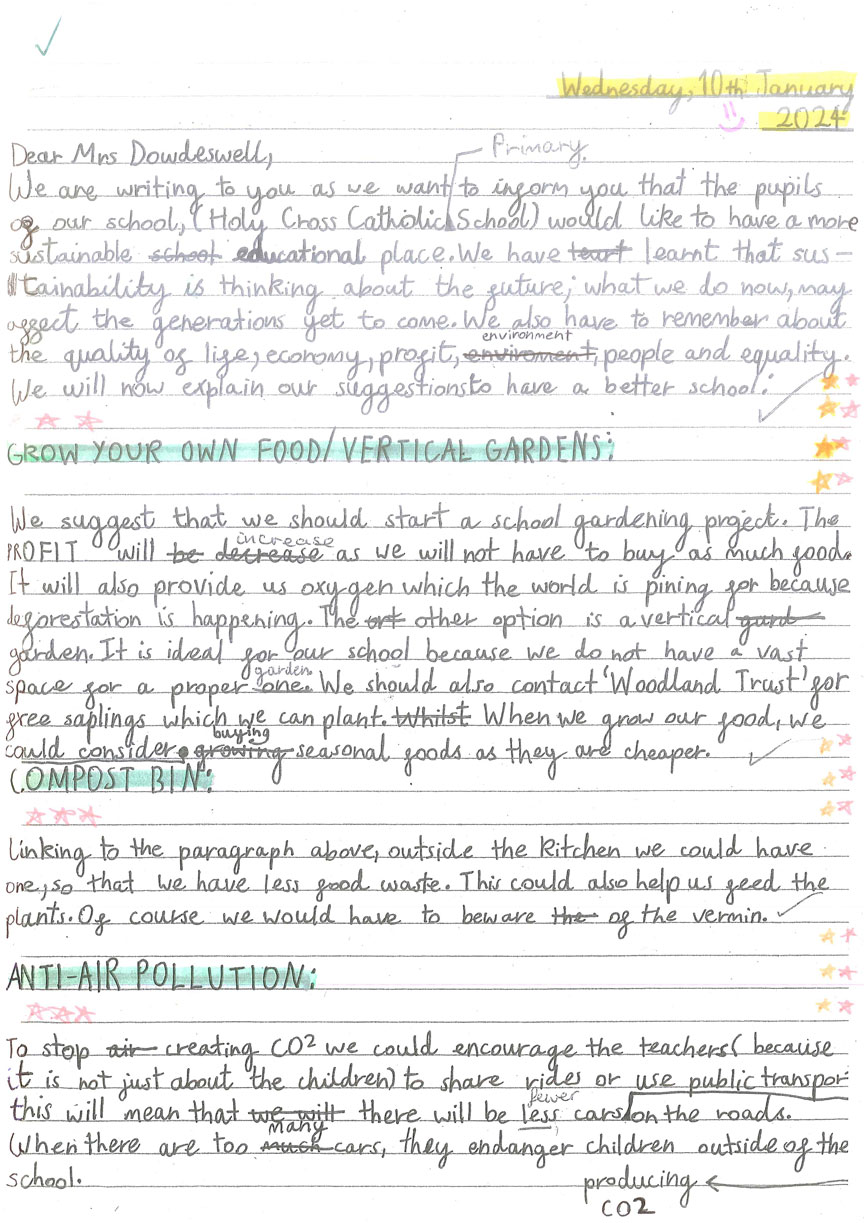 Wednesday, 10th January
2024
Dear Mrs Dowdeswell,
Primary
We are writing to you as we want to inform you that the pupils
of our school, (Holy Cross Catholic School) would like to have a more
sustainable school educational place. We have learnt that sus-
tainability is thinking about the future; what we do now, may
affect the generations yet to come. We also have to remember about
environment
the quality of life, economy, profit, enviroment, people and equality.
We will now explain our suggestions to have a better school:
GROW YOUR OWN FOOD/VERTICAL GARDENS:
We suggest that we should start a school gardening project. The
increase
PROFIT will be decrease as we will not have to buy as much food.
It will also provide us oxygen which the world is pining for because
deforestation is happening. The ort other option is a vertical gard
garden. It is ideal for our school because we do not have a vast
garden
space for a proper one. We should also contact 'Woodland Trust' for
free saplings which we can plant. Whilst When we grow our food, we
buying
could consider growing seasonal goods as they are cheaper.
COMPOST BIN:
Linking to the paragraph above, outside the kitchen we could have
one, so that we have less food waste. This could also help us feed the
plants. Of course we would have to beware the of the vermin.
ANTI-AIR POLLUTION:
To stop air creating CO2 we could encourage the teachers (because
it is not just about the children) to share rides or use public transpor
fewer
this will mean that we will there will be less cars on the roads.
many
When there are too much cars, they endanger children outside of the
school.
producing
CO2